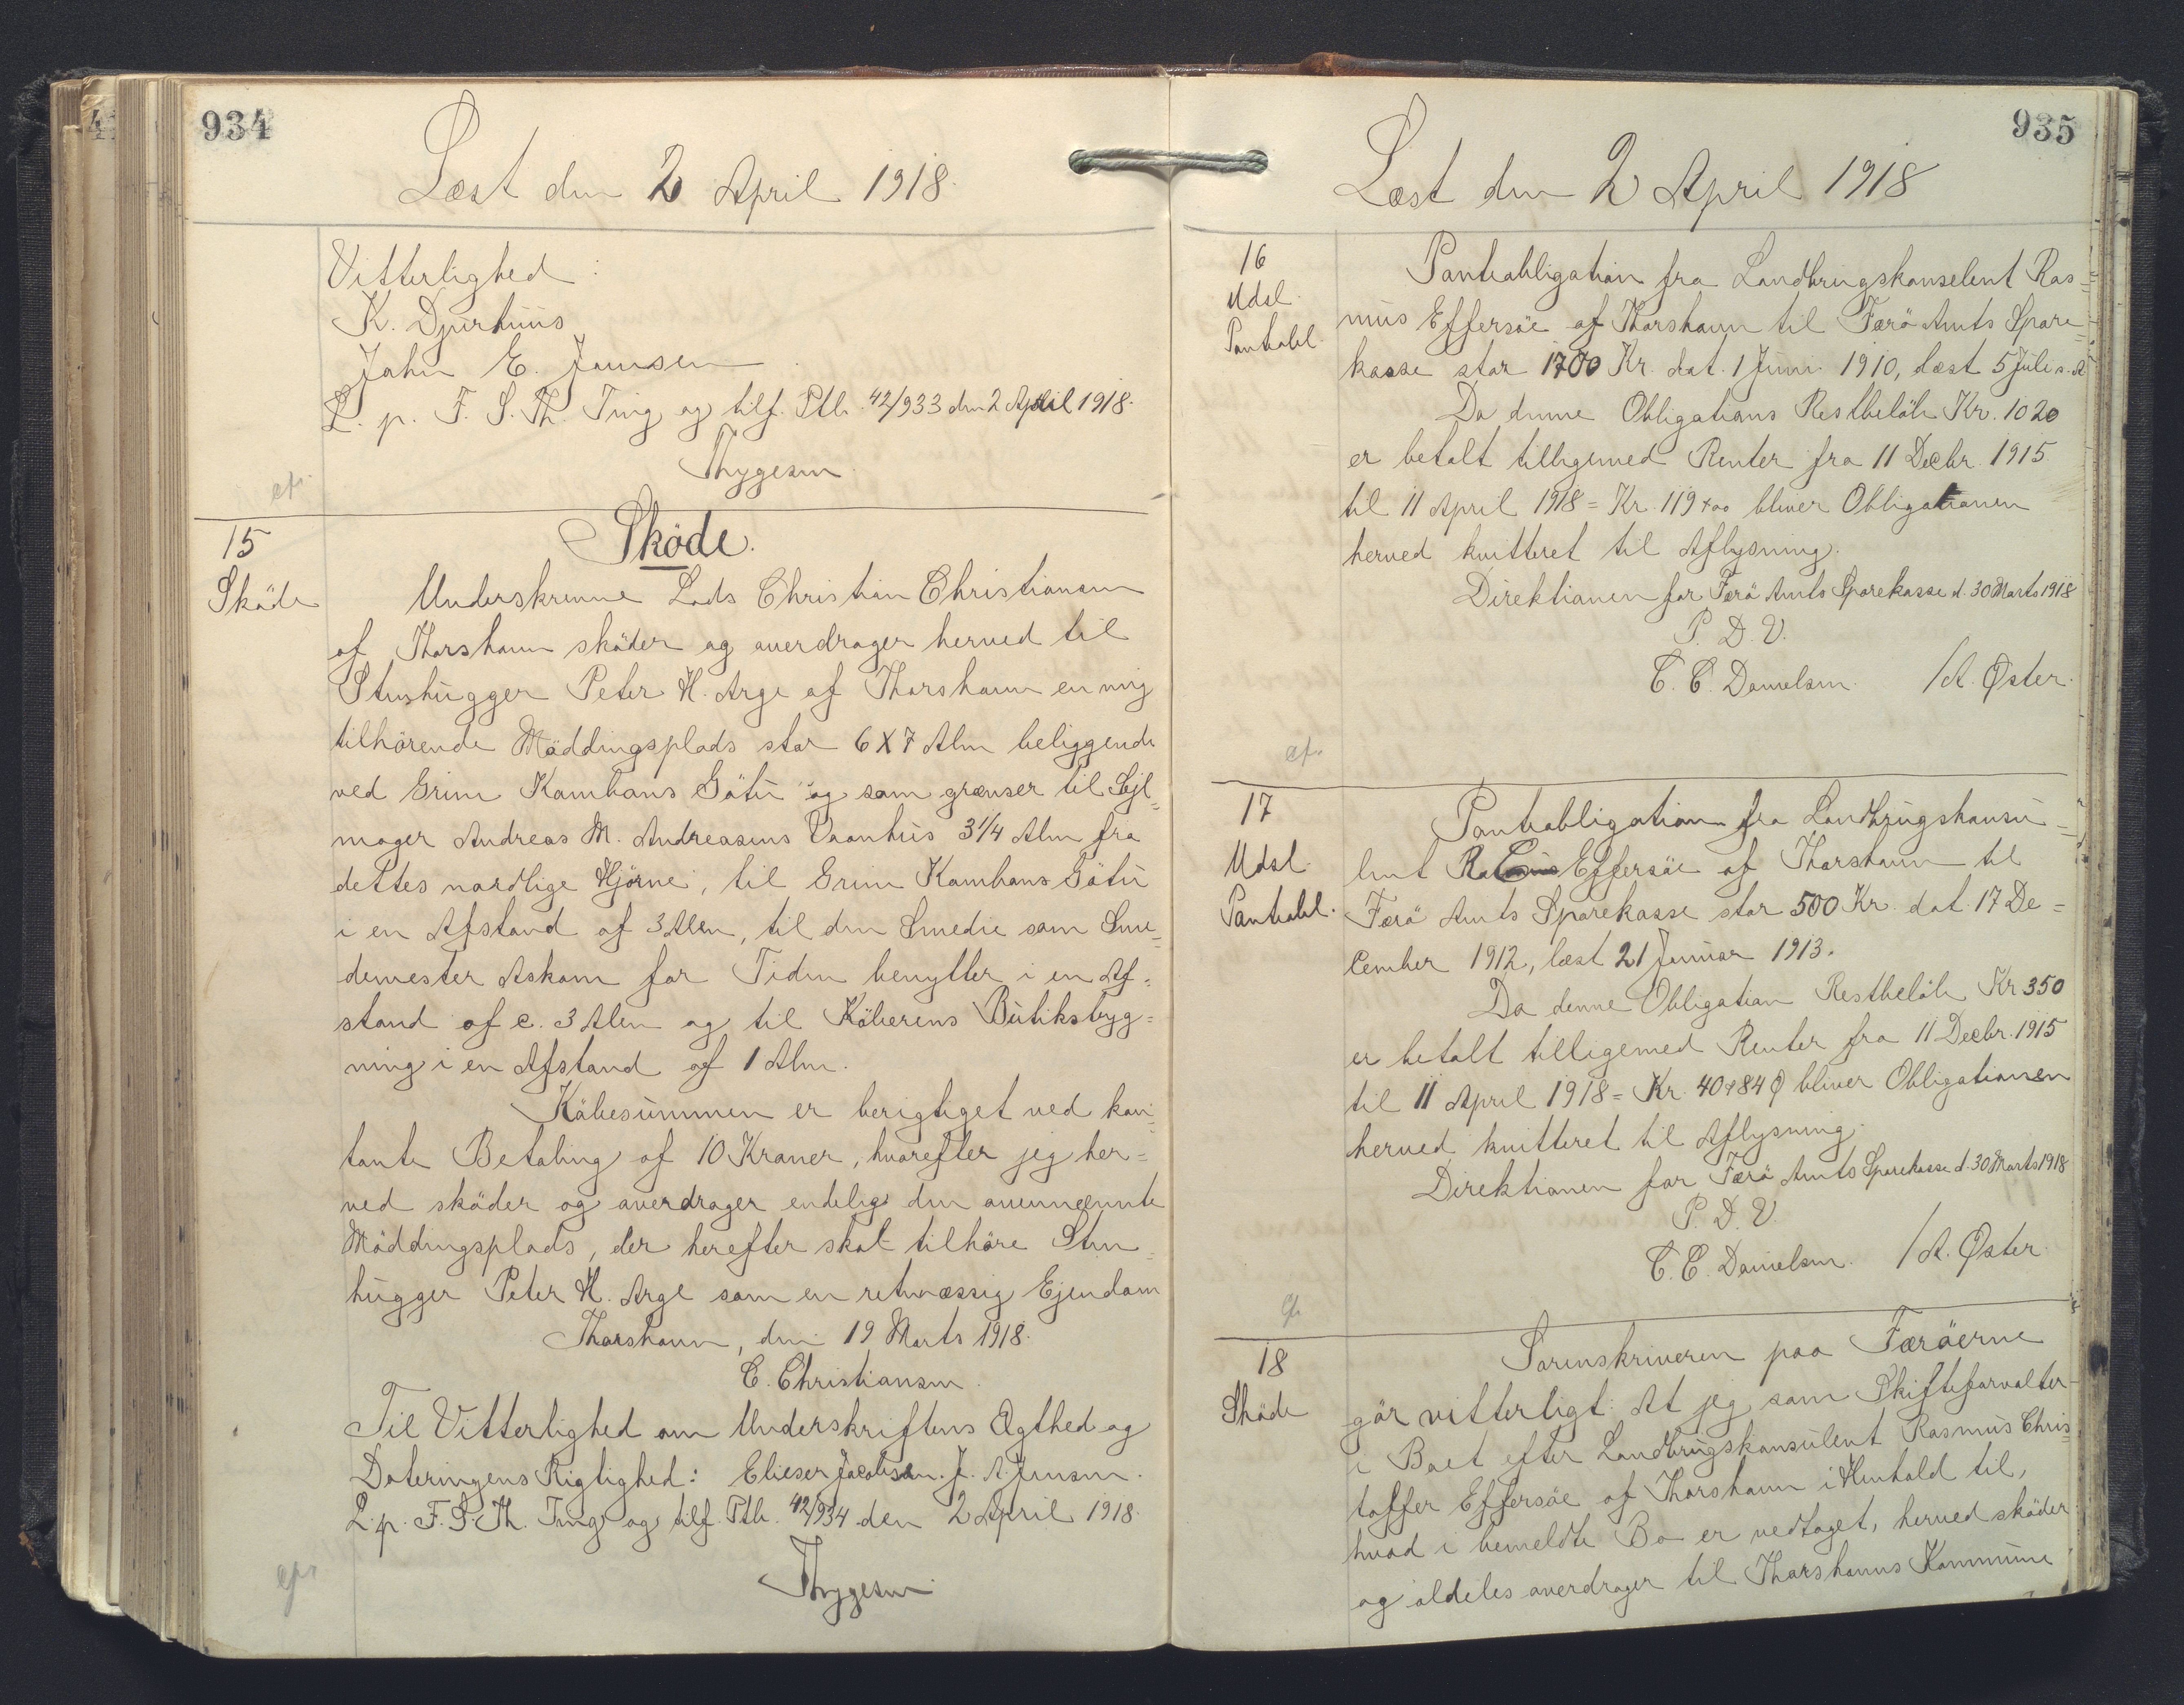 934
Læst den 2 April 1918.
Vitterlighed:
K. Djurhuus
John E. Joensen
L. p. F. S. Th. Ting og tilf. Ptb. 42/933 den 2 April 1918.
Thygesen
cfr.
15
Sköde
Sköde.
Underskrevne Lods Christian Christiansen
af Thorshavn sköder og overdrager herved til
Stenhugger Peter H. Arge af Thorshavn en mig
tilhörende Möddingsplads stor 6 X 7 Alen beliggende
ved Grim Kambans Götu og som grænser til Sejl=
mager Andreas M. Andreasens Vaanhus 3 1/4 Alen fra
dettes nordlige Hjörne, til Grim Kambans Götu
i en Afstand af 3 Alen, til den Smedie som Sme=
demester Askam for Tiden benytter i en Af=
stand af c. 3 Alen og til Köberens Butiksbyg=
ning i en Afstand af 1 Alen.
Köbesummen er berigtiget ved kon=
tante Betaling af 10 Kroner, hvorefter jeg her=
ved sköder og overdrager endelig den ovennævnte
Möddingsplads, der herefter skal tilhöre Sten=
hugger Peter H. Arge som en retmæssig Ejendom
Thorshavn, den 19 Marts 1918.
C. Christiansen.
Til Vitterlighed om Underskriftens Ægthed og
Dateringens Rigtighed: Elieser Jacobsen. J. A. Jensen.
L. p. F. S. Th. Ting og tilf. Ptb. 42/934 den 2 April 1918.
Thygesen
cfr.
935
Læst den 2 April 1918
16
Udsl.
Pantobl.
Pantobligation fra Landbrugskonsulent Ras=
mus Effersöe af Thorshavn til Færö Amts Spare=
kasse stor 1700 Kr. dat. 1 Juni 1910, læst 5 Juli s. A.
Da denne Obligations Restbelöb Kr. 1020
er betalt tilligemed Renter fra 11 Decbr. 1915
til 11 April 1918 = Kr. 119+00 bliver Obligationen
herved kvitteret til Aflysning.
Direktionen for Færö Amts Sparekasse d. 30 Marts 1918
P. D. V.
C. C. Danielsen. / A. Øster.
cfr.
17
Udsl.
Pantobl.
Pantobligation fra Landbrugskonsu=
lent Rasmus Effersöe af Thorshavn til
Færö Amts Sparekasse stor 500 Kr. dat. 17 De=
cember 1912, læst 21 Januar 1913.
Da denne Obligation Restbelöb Kr 350
er betalt tilligemed Renter fra 11 Decbr. 1915
til 11 April 1918 = Kr. 40+84 Ø bliver Obligationen
herved kvitteret til Aflysning.
Direktionen for Færö Amts Sparekasse d. 30 Marts 1918
P. D. V.
C. C. Danielsen. / A. Øster.
cfr.
18
Sköde
Sorenskriveren paa Færöerne
gör vitterligt: At jeg som Skifteforvalter
i Boet efter Landbrugskonsulent Rasmus Chris=
toffer Effersöe af Thorshavn i Henhold til,
hvad i bemeldte Bo er vedtaget, herved sköder
og aldeles overdrager til Thorshavns Kommune